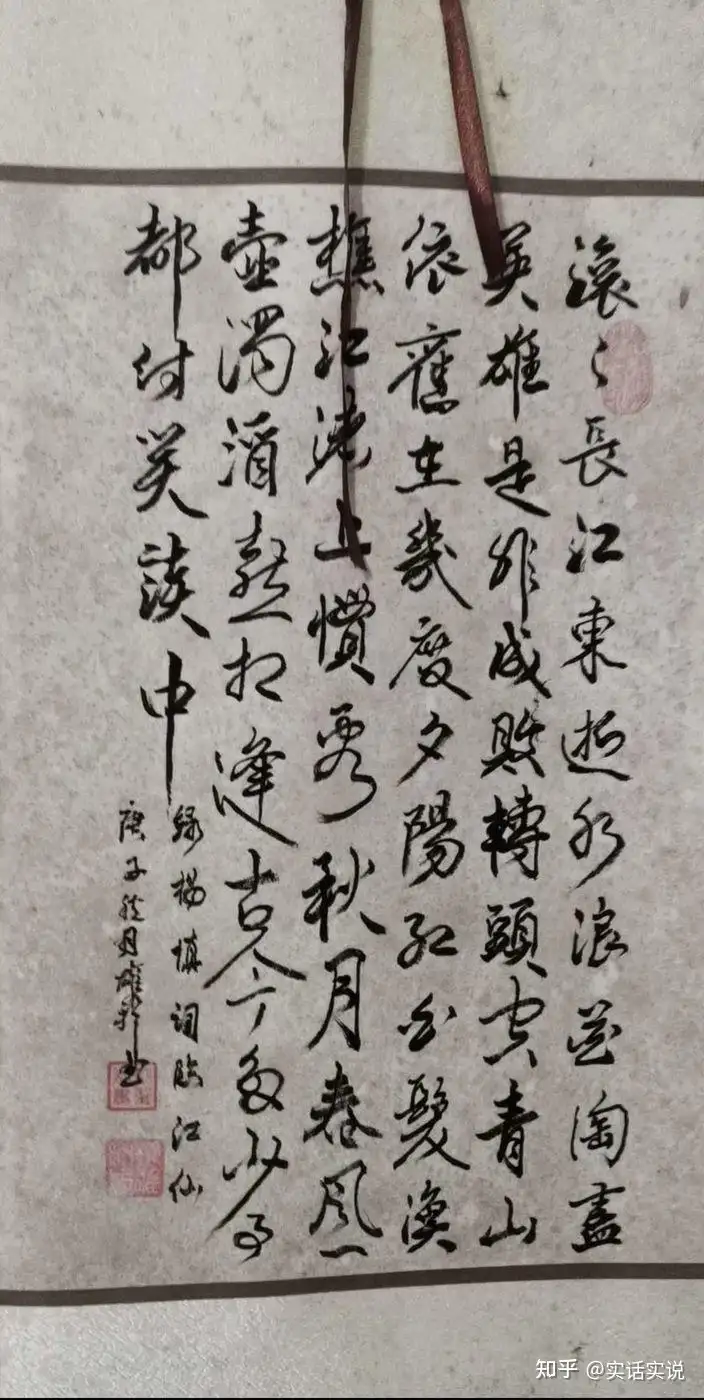 滾〻長江東逝水浪花淘盡
英雄是非成敗轉頭空青山
依舊在幾度夕陽紅白髮漁
樵江渚上慣看秋月春風一
壺濁酒喜相逢古今多少事
都付笑談中
錄楊慎詞臨江仙
庚子秋月雄書
知乎 @实话实说